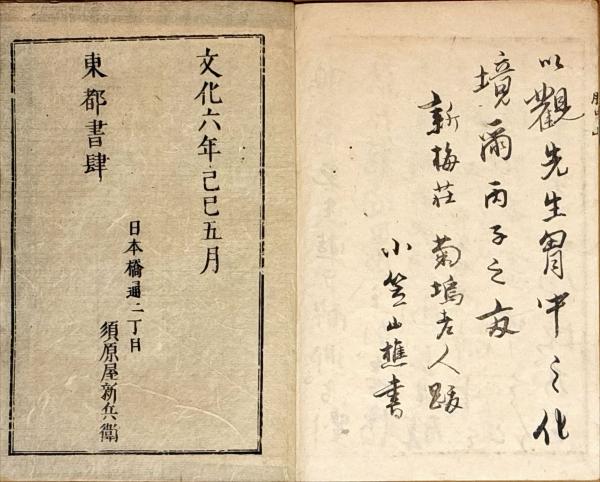 以觀先生胃中之化
境爾丙子之夜
新梅荘 菊塢老人跋
小笠山樵書
文化六年己巳五月
東都書肆
日本橋通二丁目
須原屋新兵衛